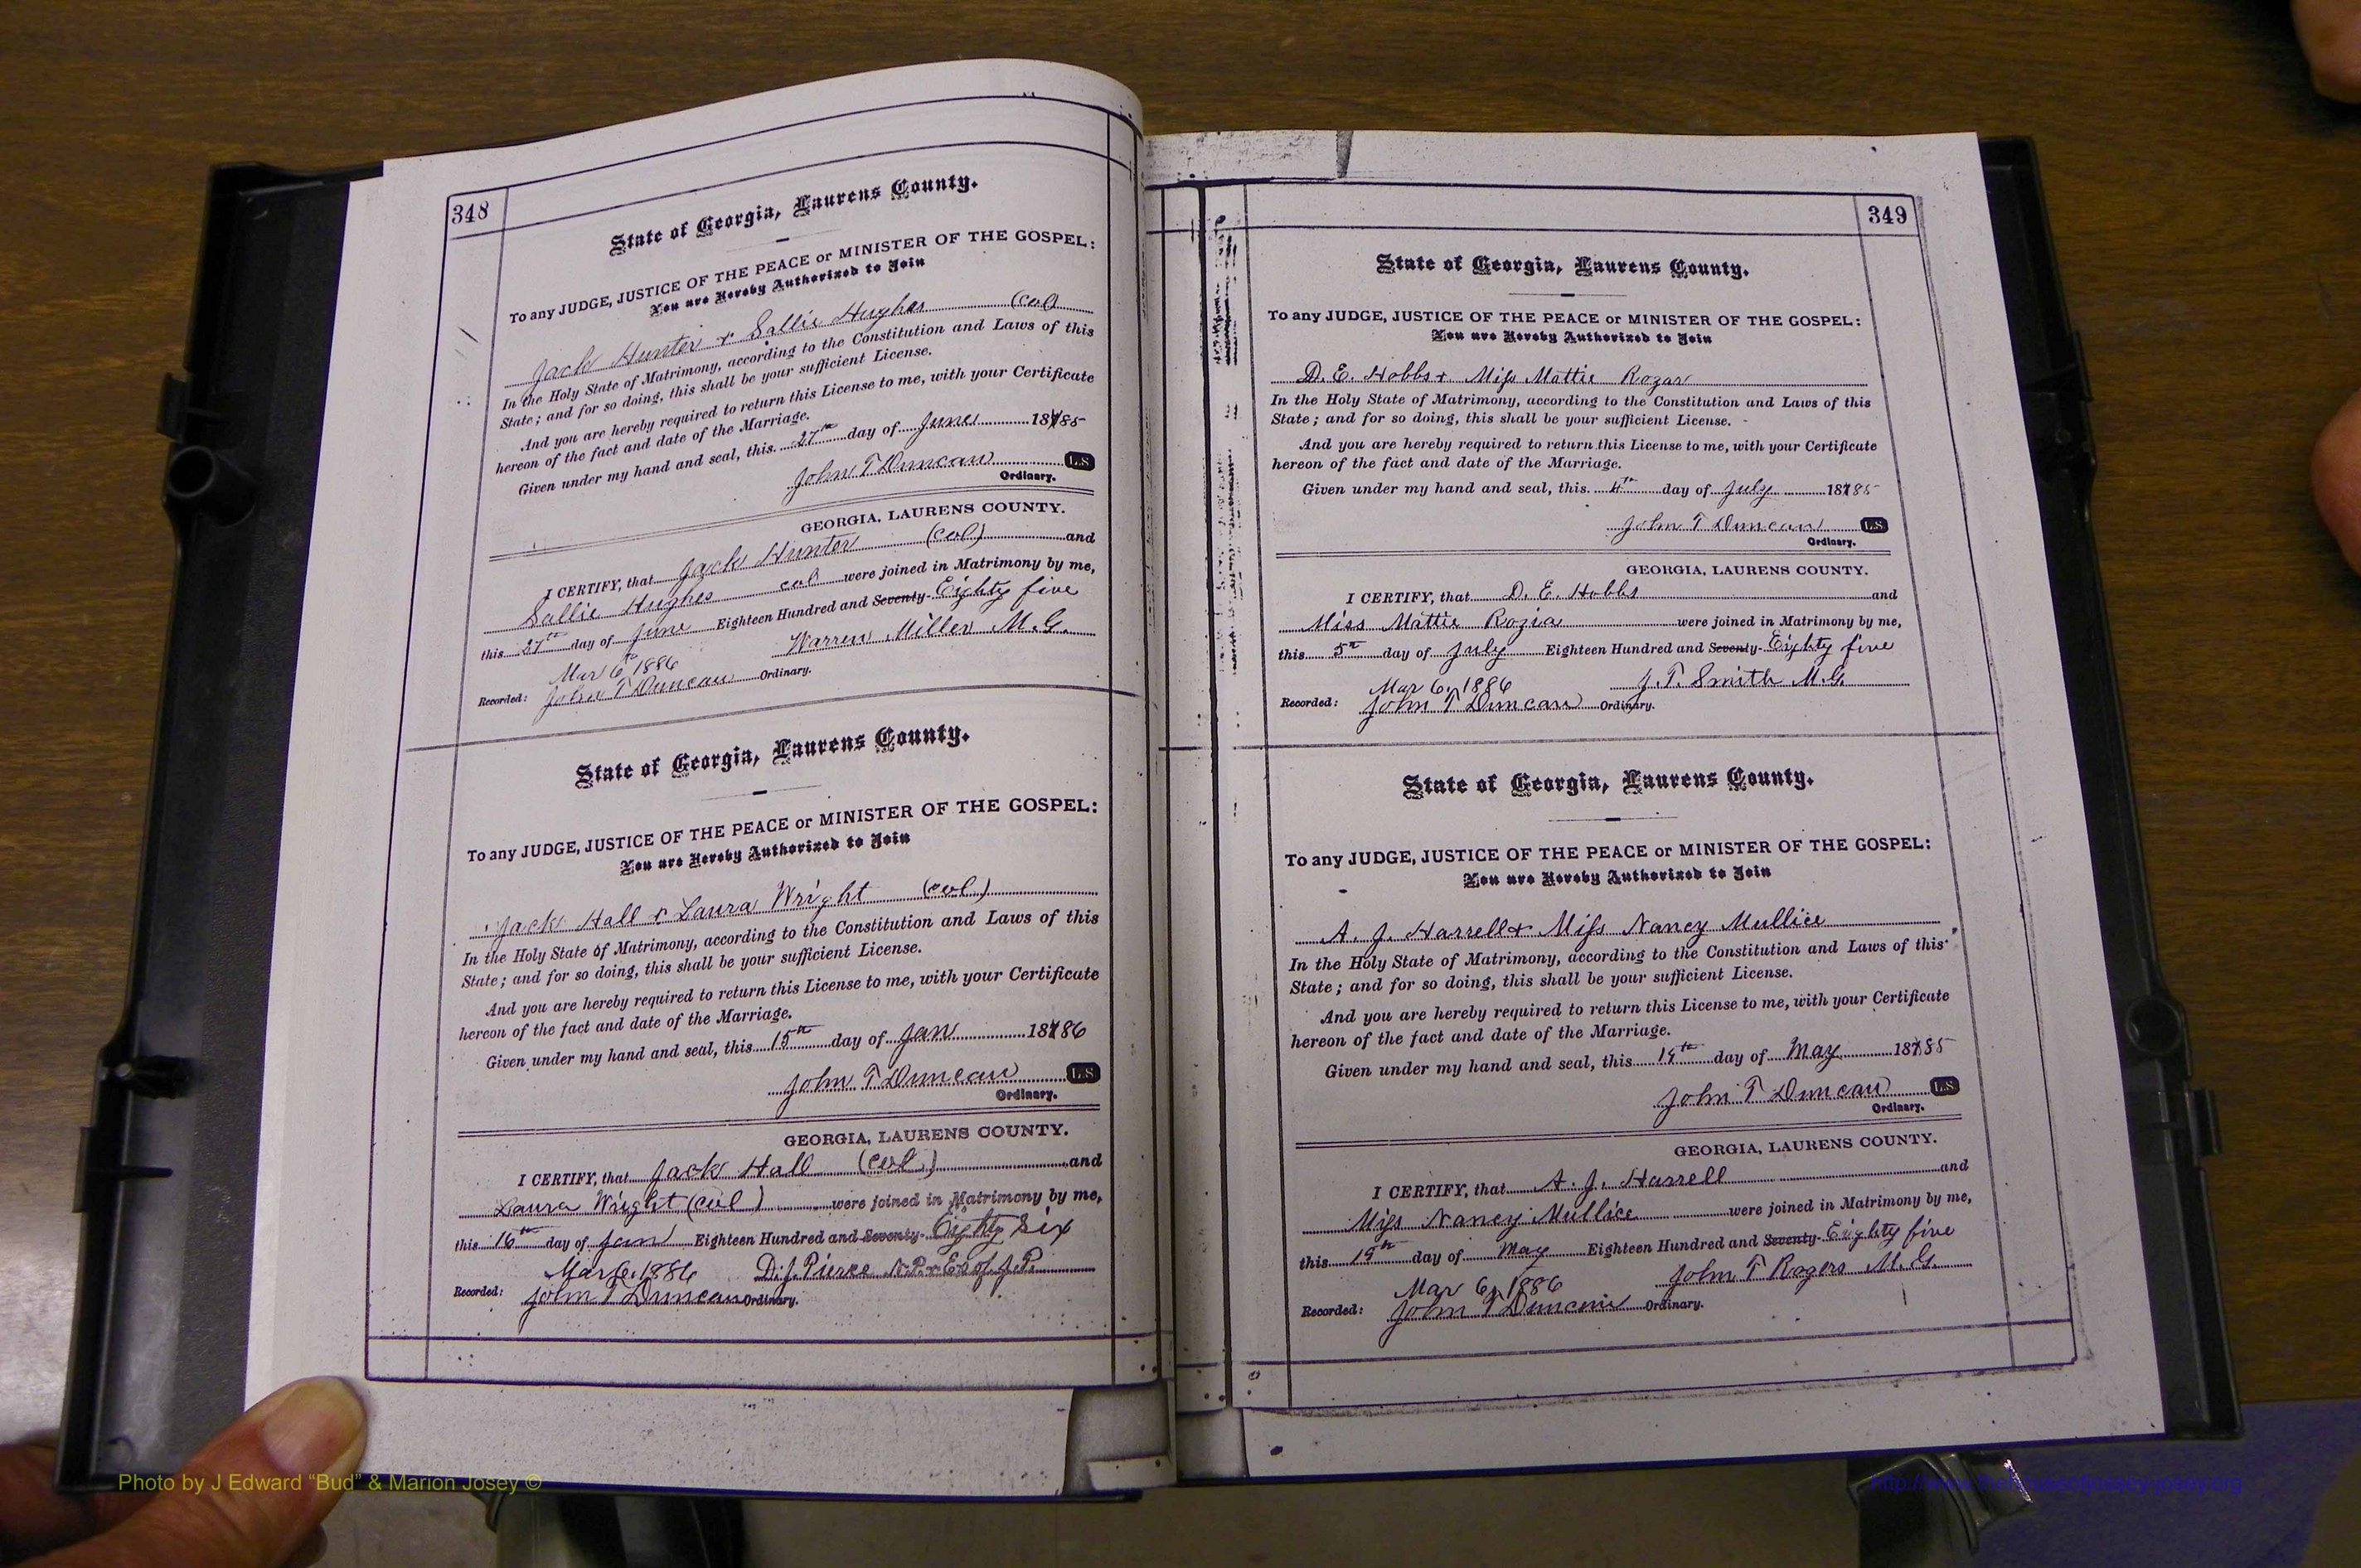 348
State of Georgia, Laurens County.
To any JUDGE, JUSTICE OF THE PEACE or MINISTER OF THE GOSPEL:
You are Hereby Authorized to Join
Jack Hunter + Sallie Hughes (col)
In the Holy State of Matrimony, according to the Constitution and Laws of this
State; and for so doing, this shall be your sufficient License.
And you are hereby required to return this License to me, with your Certificate
hereon of the fact and date of the Marriage.
Given under my hand and seal, this 27th day of June 18785
John T Duncan L.S.
Ordinary.
GEORGIA, LAURENS COUNTY.
I CERTIFY, that Jack Hunter (col) and
Sallie Hughes col were joined in Matrimony by me,
this 27th day of June Eighteen Hundred and Seventy- Eighty five
Mar 6, 1886 Warren Miller M.G.
Recorded: John T Duncan Ordinary.
State of Georgia, Laurens County.
To any JUDGE, JUSTICE OF THE PEACE or MINISTER OF THE GOSPEL:
You are Hereby Authorized to Join
Jack Hall + Laura Wright (col)
In the Holy State of Matrimony, according to the Constitution and Laws of this
State; and for so doing, this shall be your sufficient License.
And you are hereby required to return this License to me, with your Certificate
hereon of the fact and date of the Marriage.
Given under my hand and seal, this 15th day of Jan 18786
John T Duncan L.S.
Ordinary.
GEORGIA, LAURENS COUNTY.
I CERTIFY, that Jack Hall (col) and
Laura Wright (col) were joined in Matrimony by me,
this 16th day of Jan Eighteen Hundred and Seventy- Eighty six
Mar 6, 1886 D.J. Pierce N.P. + Ex of J.P.
Recorded: John T Duncan Ordinary.
349
State of Georgia, Laurens County.
To any JUDGE, JUSTICE OF THE PEACE or MINISTER OF THE GOSPEL:
You are Hereby Authorized to Join
D. E. Hobbs + Miss Mattie Rozar
In the Holy State of Matrimony, according to the Constitution and Laws of this
State; and for so doing, this shall be your sufficient License.
And you are hereby required to return this License to me, with your Certificate
hereon of the fact and date of the Marriage.
Given under my hand and seal, this 4th day of July 18785
John T Duncan L.S.
Ordinary.
GEORGIA, LAURENS COUNTY.
I CERTIFY, that D. E. Hobbs and
Miss Mattie Rozia were joined in Matrimony by me,
this 5th day of July Eighteen Hundred and Seventy- Eighty five
Mar 6, 1886 J. T. Smith M.G.
Recorded: John T Duncan Ordinary.
State of Georgia, Laurens County.
To any JUDGE, JUSTICE OF THE PEACE or MINISTER OF THE GOSPEL:
You are Hereby Authorized to Join
A. J. Harrell + Miss Nancy Mullice
In the Holy State of Matrimony, according to the Constitution and Laws of this
State; and for so doing, this shall be your sufficient License.
And you are hereby required to return this License to me, with your Certificate
hereon of the fact and date of the Marriage.
Given under my hand and seal, this 19th day of May 18785
John T Duncan L.S.
Ordinary.
GEORGIA, LAURENS COUNTY.
I CERTIFY, that A. J. Harrell and
Miss Nancy Mullice were joined in Matrimony by me,
this 19th day of May Eighteen Hundred and Seventy- Eighty five
Mar 6, 1886 John T Rogers M.G.
Recorded: John T Duncan Ordinary.
Photo by J Edward “Bud” & Marion Josey ©